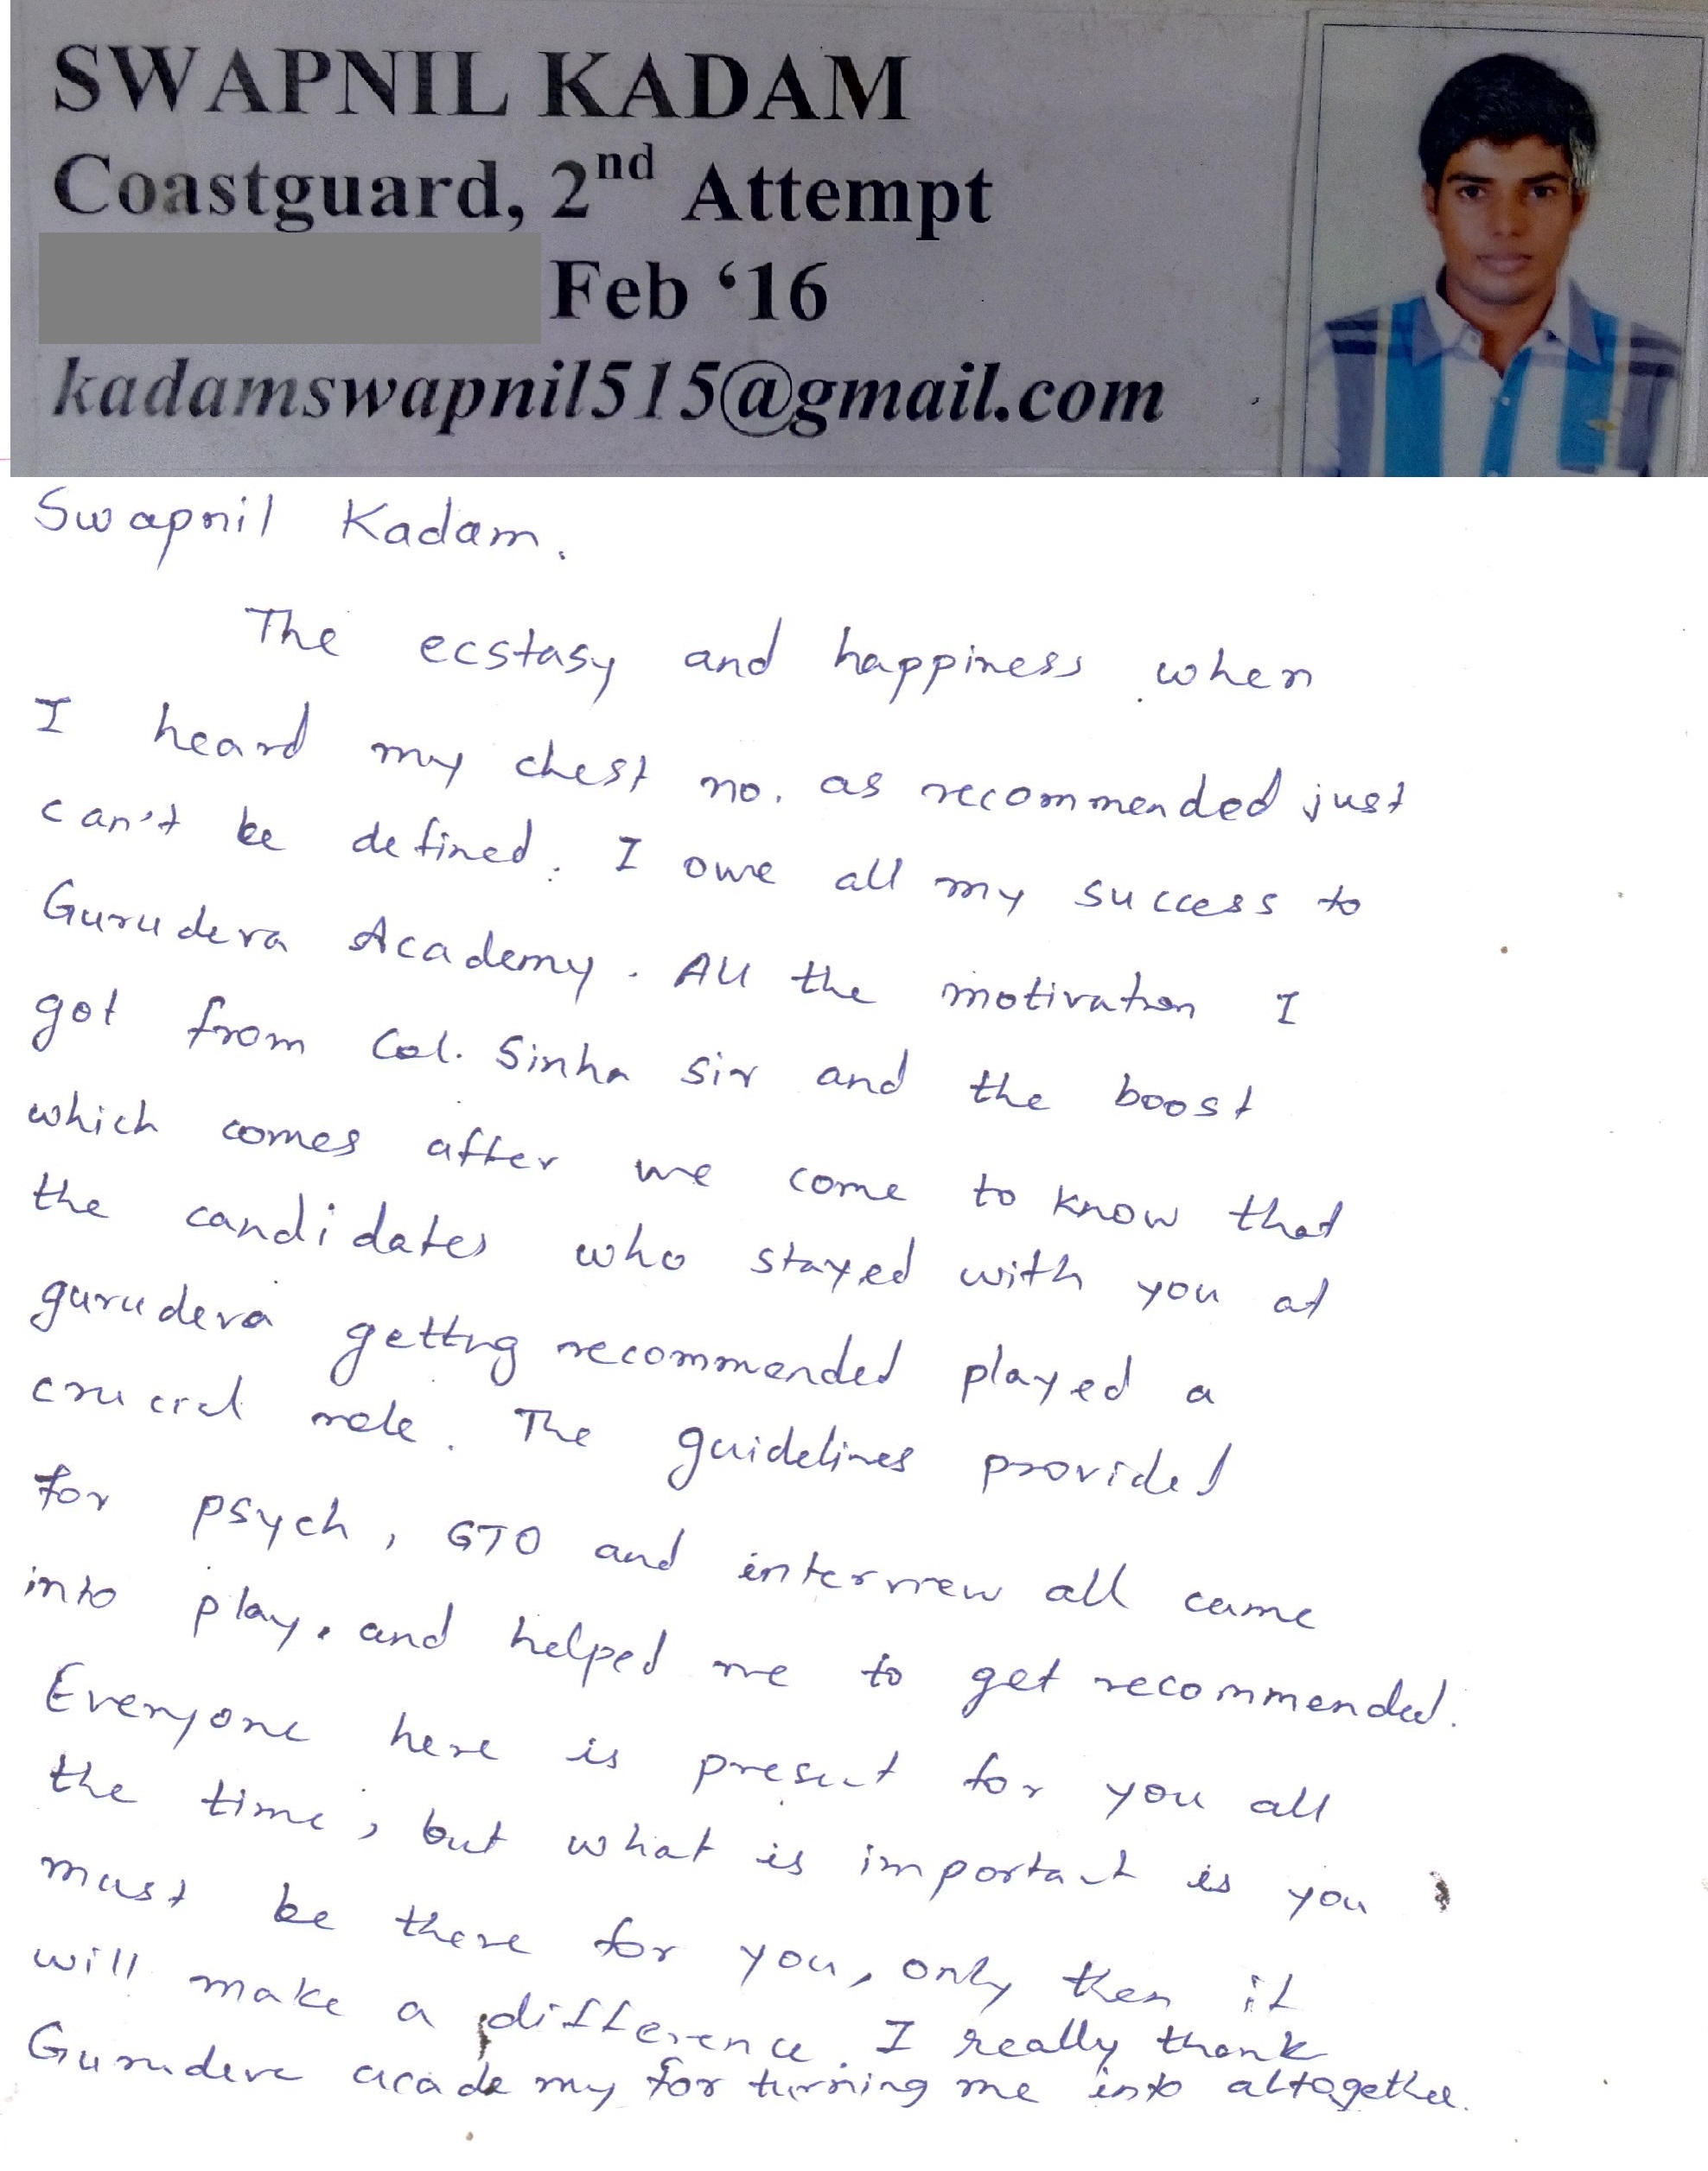 SWAPNIL KADAM
Coastguard, 2nd Attempt
Feb ‘16
kadamswapnil515@gmail.com
Swapnil Kadam.
The ecstasy and happiness when
I heard my chest no. as recommended just
can't be defined. I owe all my success to
Gurudeva Academy. All the motivation I
got from Col. Sinha sir and the boost
which comes after we come to know that
the candidates who stayed with you at
gurudeva getting recommended played a
crucial role. The guidelines provided
for psych, GTO and interview all came
into play. and helped me to get recommended.
Everyone here is present for you all
the time, but what is important is you
must be there for you, only then it
will make a difference. I really thank
Gurudeva academy for turning me into altogether.